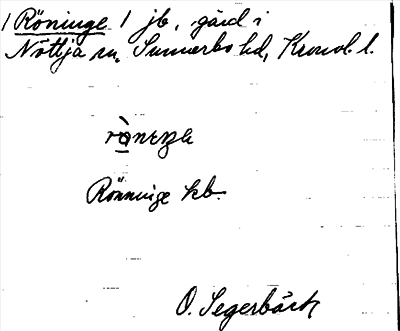 1 Röninge 1 jb, gård i
Nöttja sn, Sunnerbo hd, Kronob. l.
Rönninge kb.
O. Segerbäck